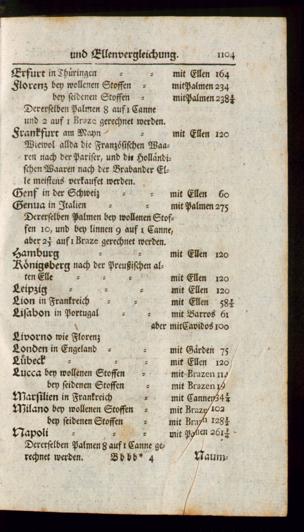 und Ellenvergleichung. 1104
Erfurt in Thüringen = = mit Ellen 164
Florenz bey wollenen Stoffen = mit Palmen 234
bey seidenen Stoffen = mit Palmen 238½
Dererselben Palmen 8 auf 1 Canne
und 2 auf 1 Braze gerechnet werden.
Frankfurt am Mayn = = mit Ellen 120
Wiewol allda die Französischen Waa-
ren nach der Pariser, und die Holländi-
schen Waaren nach der Brabander El-
le meistens verkaufet werden.
Genf in der Schweiz = = mit Ellen 60
Genua in Italien = = mit Palmen 275
Dererselben Palmen bey wollenen Stof-
fen 10, und bey linnen 9 auf 1 Canne,
aber 2⅓ auf 1 Braze gerechnet werden.
Hamburg = = = mit Ellen 120
Königsberg nach der Preußischen al-
ten Elle = = = mit Ellen 120
Leipzig = = = mit Ellen 120
Lion in Frankreich = = mit Ellen 58¾
Lisabon in Portugal = = mit Barros 61
aber mit Cavidos 100
Livorno wie Florenz
Londen in Engeland = = mit Gärden 75
Lübeck = = = mit Ellen 120
Lucca bey wollenen Stoffen = mit Brazen
bey seidenen Stoffen = mit Brazen
Marsilien in Frankreich = mit Cannen 34½
Milano bey wollenen Stoffen = mit Brazen 102
bey seidenen Stoffen = mit Brazen 128½
Napoli = = = mit Palmen 261½
Dererselben Palmen 8 auf 1 Canne ge-
rechnet werden. Bbbb* 4 Naum-